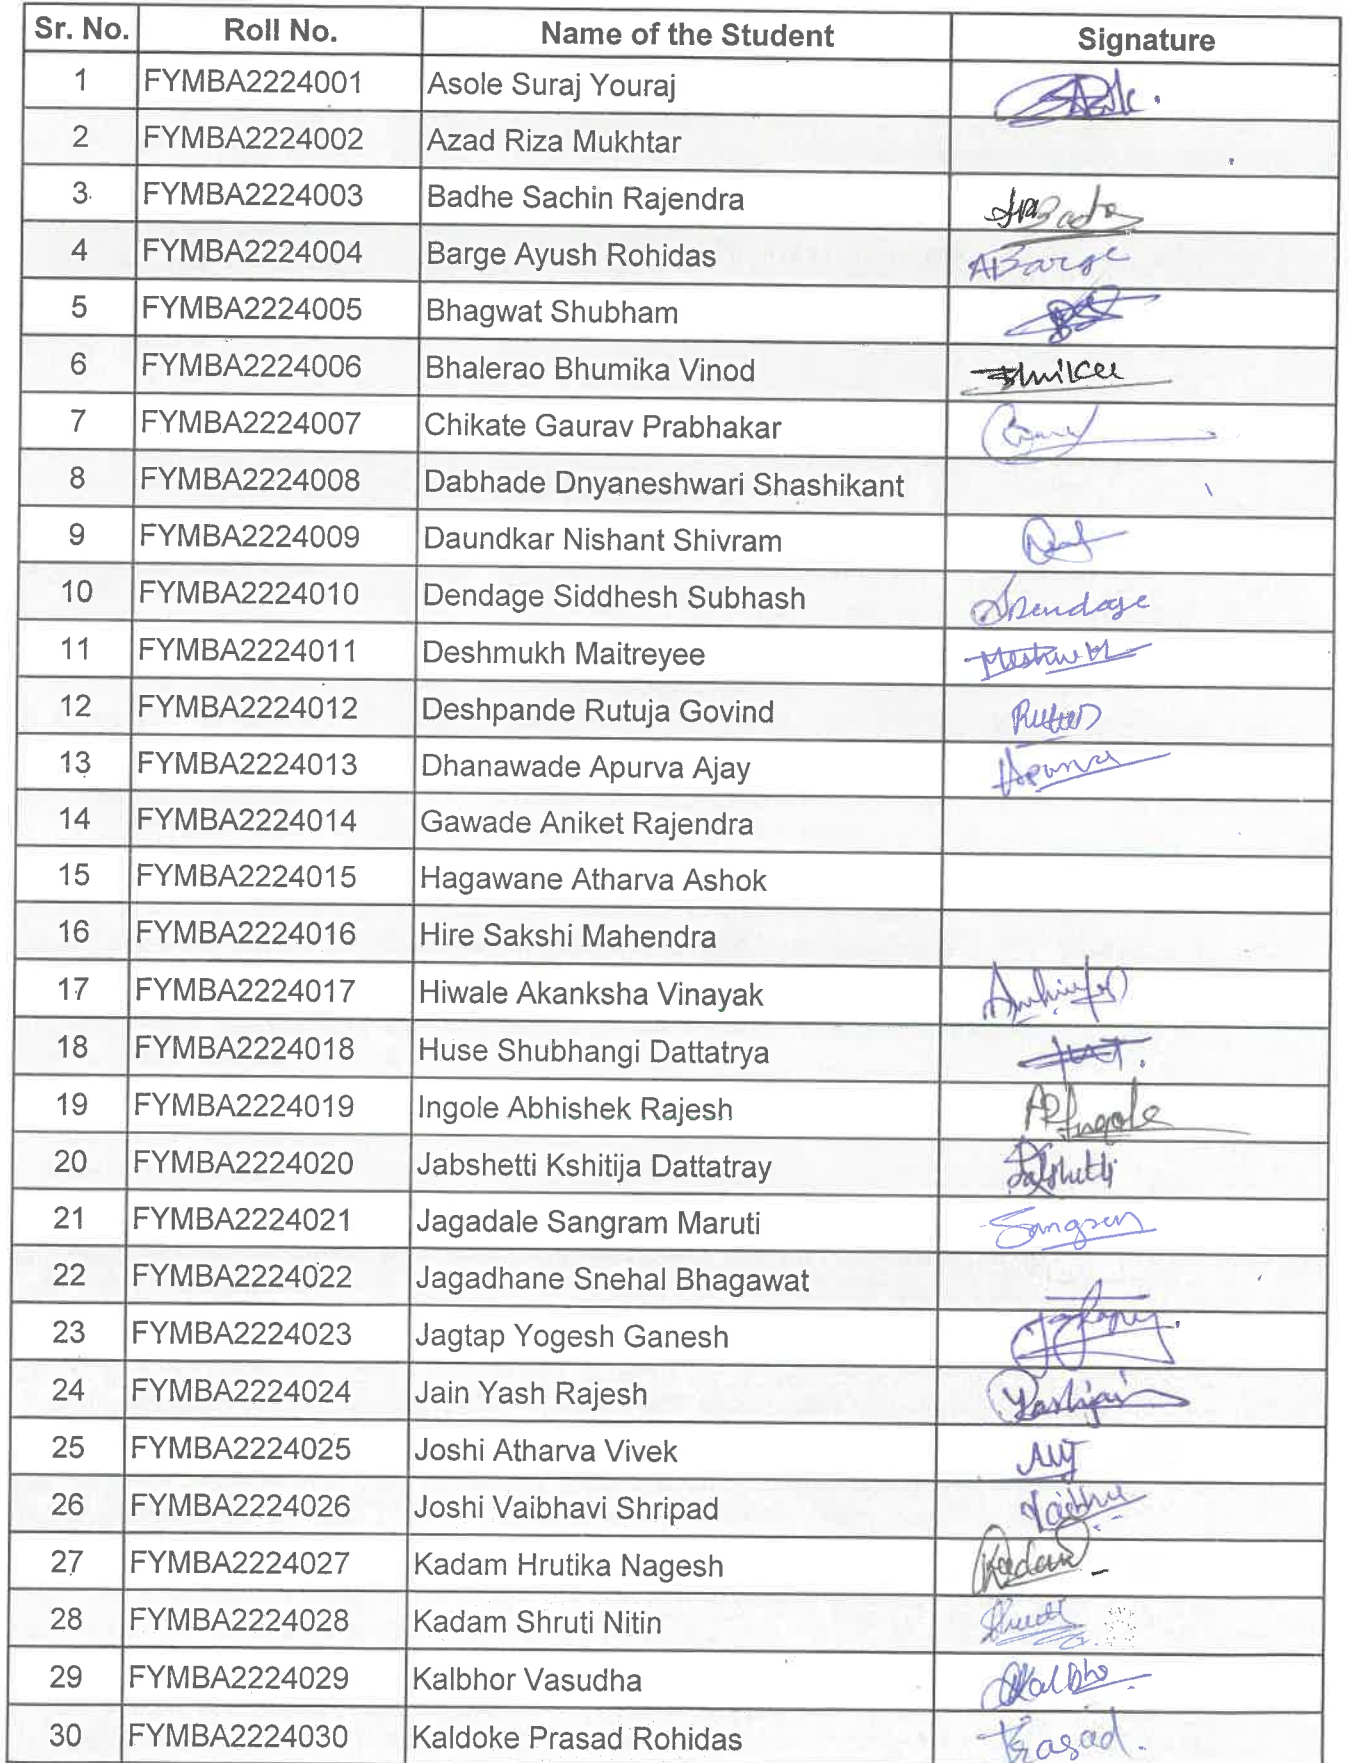 Sr. No. Roll No. Name of the Student Signature
1 FYMBA2224001 Asole Suraj Youraj
2 FYMBA2224002 Azad Riza Mukhtar
3 FYMBA2224003 Badhe Sachin Rajendra
4 FYMBA2224004 Barge Ayush Rohidas ABarge
5 FYMBA2224005 Bhagwat Shubham
6 FYMBA2224006 Bhalerao Bhumika Vinod
7 FYMBA2224007 Chikate Gaurav Prabhakar
8 FYMBA2224008 Dabhade Dnyaneshwari Shashikant
9 FYMBA2224009 Daundkar Nishant Shivram
10 FYMBA2224010 Dendage Siddhesh Subhash
11 FYMBA2224011 Deshmukh Maitreyee
12 FYMBA2224012 Deshpande Rutuja Govind
13 FYMBA2224013 Dhanawade Apurva Ajay
14 FYMBA2224014 Gawade Aniket Rajendra
15 FYMBA2224015 Hagawane Atharva Ashok
16 FYMBA2224016 Hire Sakshi Mahendra
17 FYMBA2224017 Hiwale Akanksha Vinayak
18 FYMBA2224018 Huse Shubhangi Dattatrya
19 FYMBA2224019 Ingole Abhishek Rajesh ARIngole
20 FYMBA2224020 Jabshetti Kshitija Dattatray
21 FYMBA2224021 Jagadale Sangram Maruti
22 FYMBA2224022 Jagadhane Snehal Bhagawat
23 FYMBA2224023 Jagtap Yogesh Ganesh
24 FYMBA2224024 Jain Yash Rajesh Yashjain
25 FYMBA2224025 Joshi Atharva Vivek AVJ
26 FYMBA2224026 Joshi Vaibhavi Shripad
27 FYMBA2224027 Kadam Hrutika Nagesh Kadam
28 FYMBA2224028 Kadam Shruti Nitin
29 FYMBA2224029 Kalbhor Vasudha
30 FYMBA2224030 Kaldoke Prasad Rohidas Prasad.